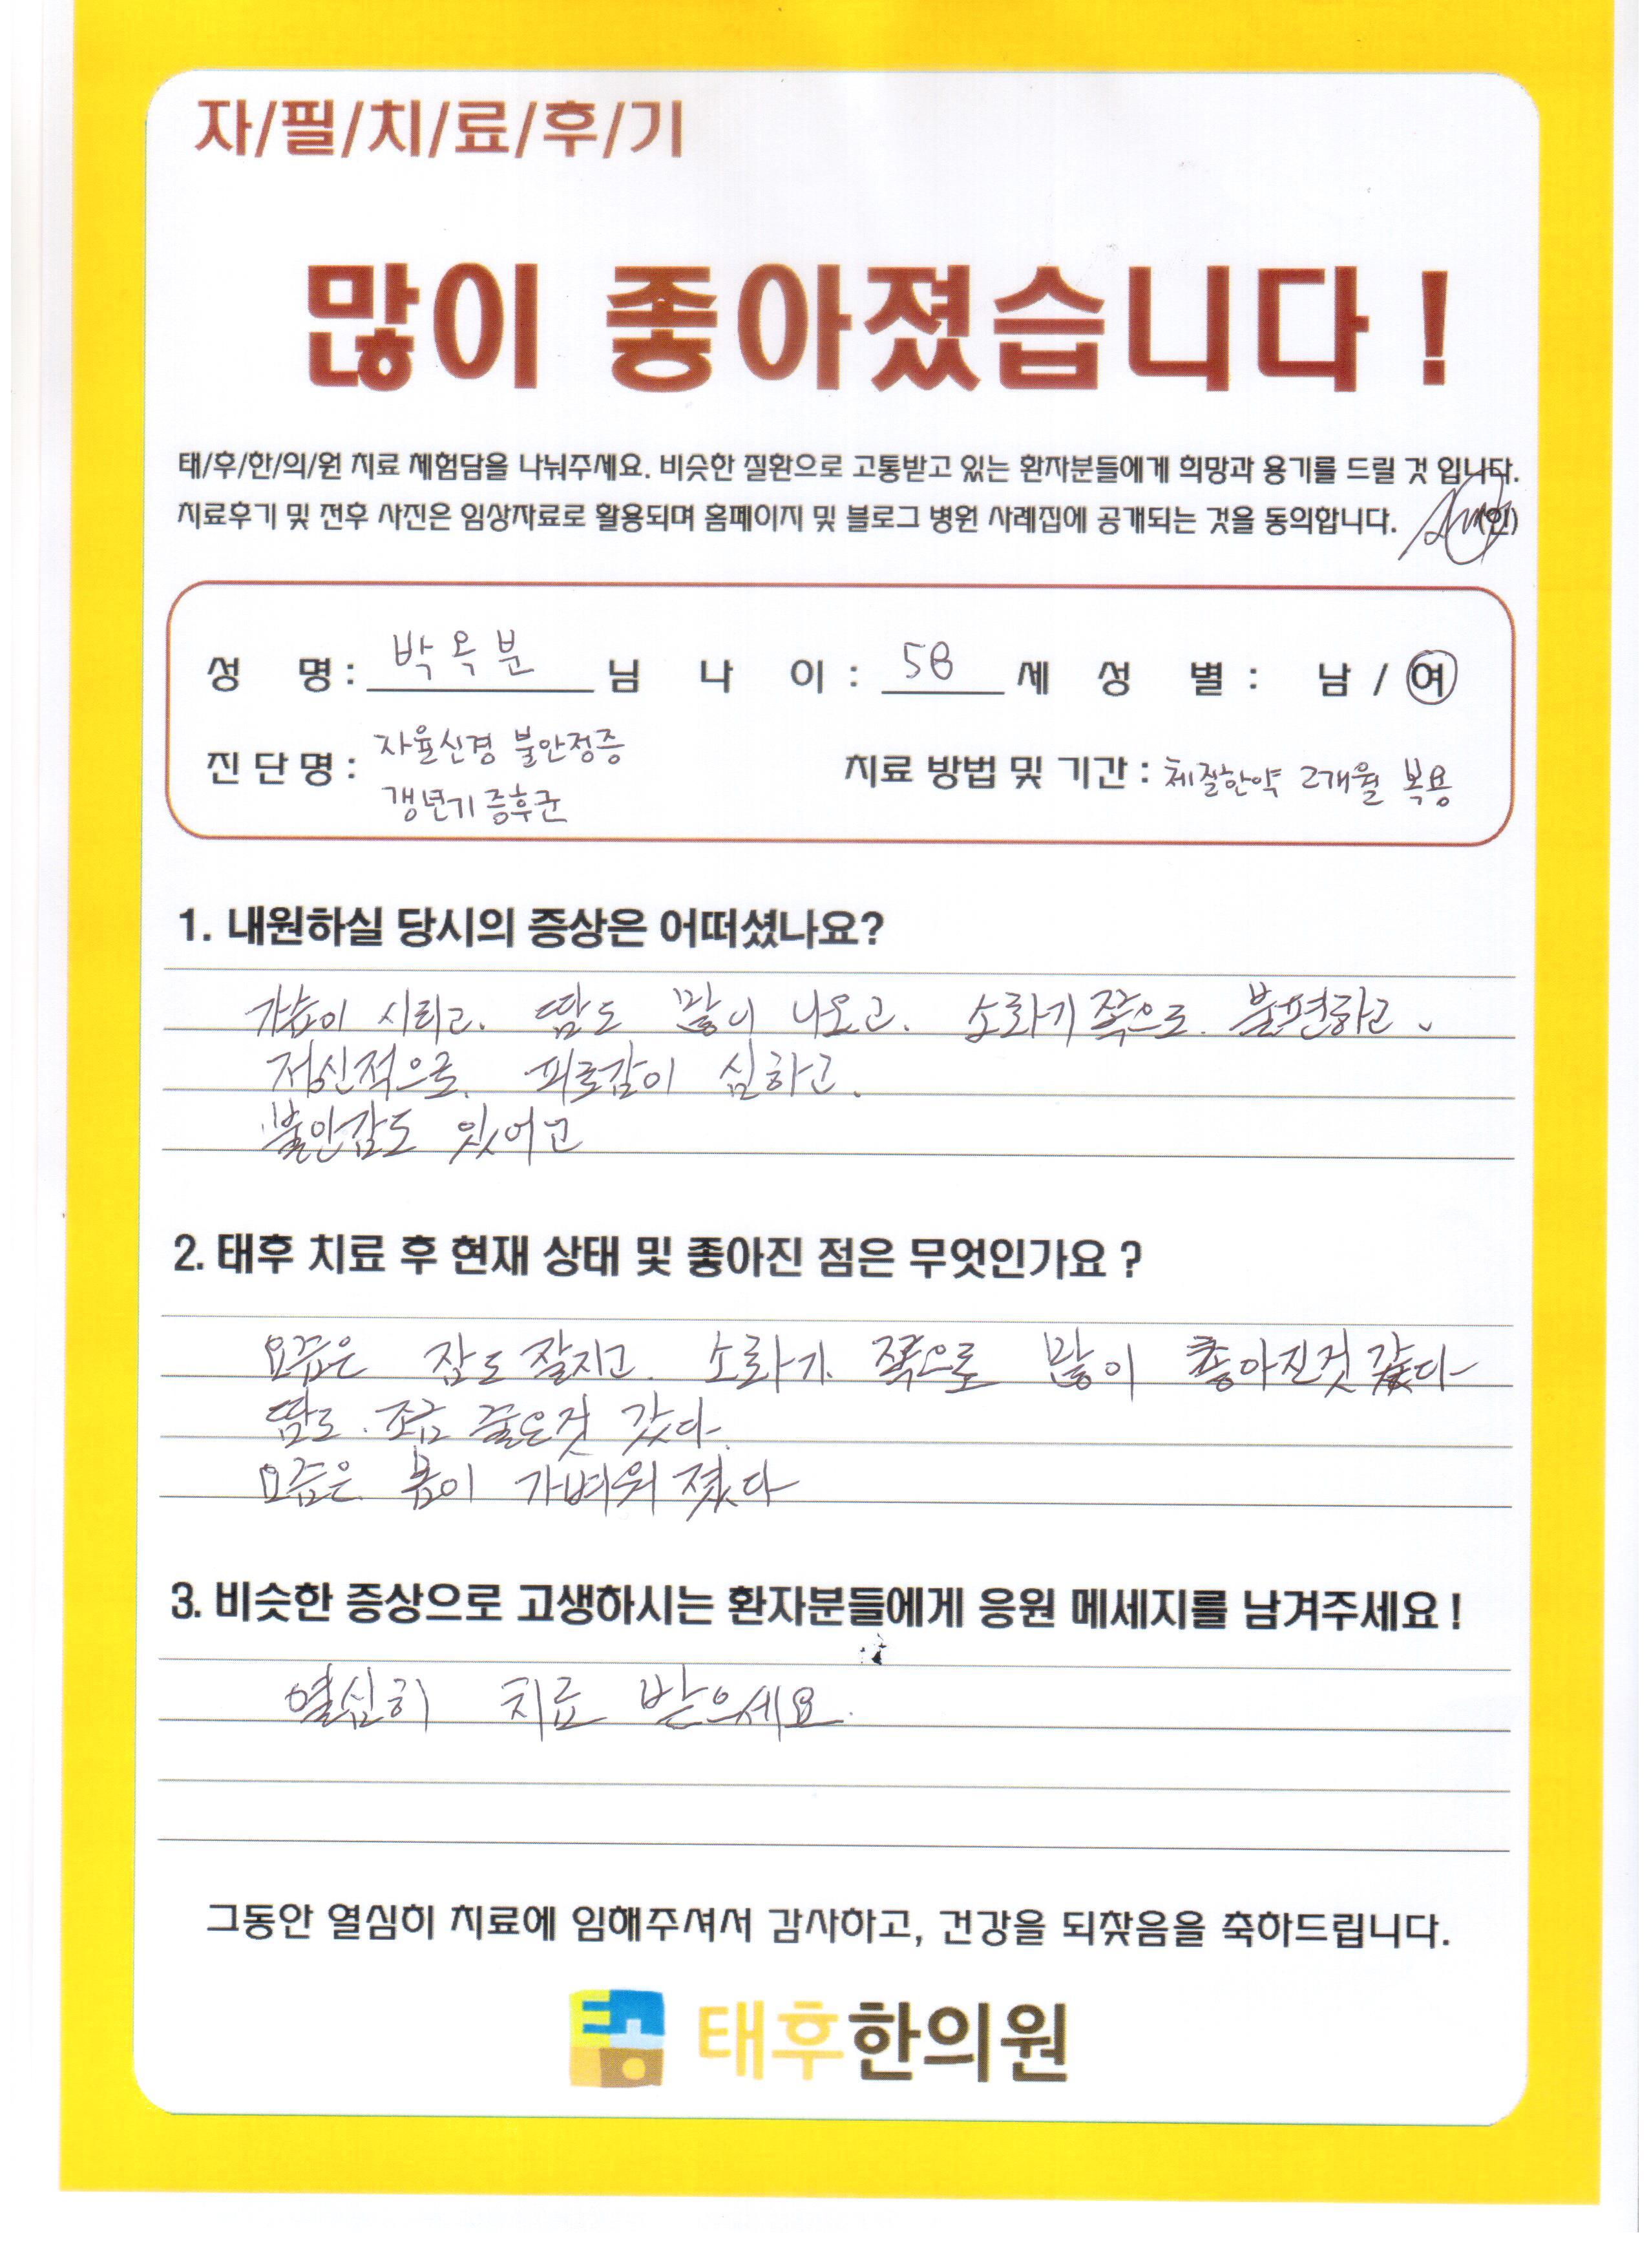 자/필/치/료/후/기
많이 좋아졌습니다 !
태/후/한/의/원 치료 체험담을 나눠주세요. 비슷한 질환으로 고통받고 있는 환자분들에게 희망과 용기를 드릴 것 입니다.
치료후기 및 전후 사진은 임상자료로 활용되며 홈페이지 및 블로그 병원 사례집에 공개되는 것을 동의합니다. (인)
성 명 : 박옥분 님 나 이 : 58 세 성 별 : 남 / 여
진 단 명 : 자율신경 불안정증
갱년기 증후군
치료 방법 및 기간 : 체질한약 2개월 복용
1. 내원하실 당시의 증상은 어떠셨나요?
가슴이 시리고. 땀도 많이 나오고. 소화기쪽으로. 불편하고.
정신적으로. 피로감이 심하고.
불안감도 있어고
2. 태후 치료 후 현재 상태 및 좋아진 점은 무엇인가요 ?
요즘은 잠도 잘자고. 소화기. 쪽으로 많이 좋아진것 같다
땀도. 조금 줄은것 갔다.
요즘은 몸이 가벼워 졌다
3. 비슷한 증상으로 고생하시는 환자분들에게 응원 메세지를 남겨주세요 !
열심히 치료 받으세요.
그동안 열심히 치료에 임해주셔서 감사하고, 건강을 되찾음을 축하드립니다.
태후한의원